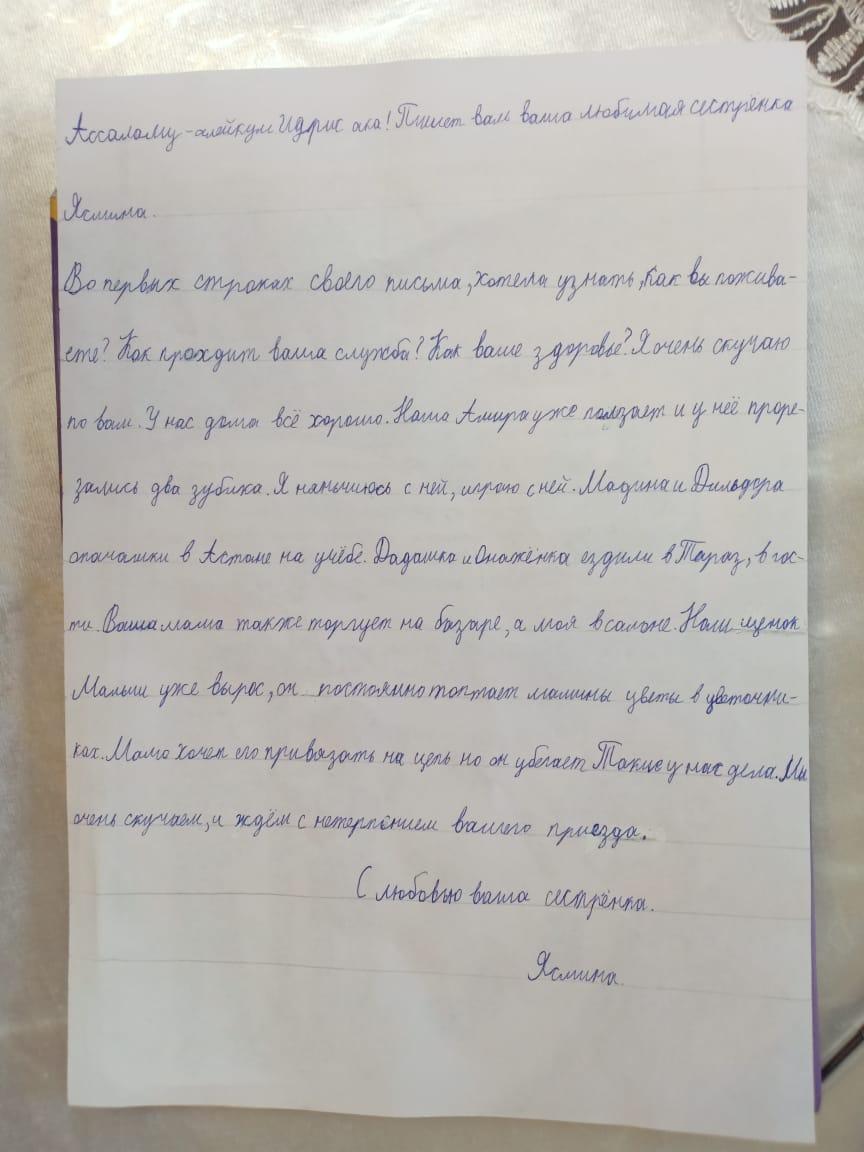 Ассалому-алейкум Идрис ака! Пишет вам ваша любимая сестрёнка
Ясмина.
Во первых строках своего письма, хотела узнать, как вы пожива-
ете? Как проходит ваша служба? Как ваше здоровье? Я очень скучаю
по вам. У нас дома всё хорошо. Наша Амира уже ползает и у неё проре-
зались два зубика. Я няньчиюсь с ней, играю с ней. Мадина и Дильдора
опачашки в Астане на учёбе. Дадашка и Онажёнка ездили в Тараз, в гос-
ти. Ваша мама также торгует на базаре, а моя в салоне. Наш щенок
Малыш уже вырос, он постоянно топтает мамины цветы в цветочни-
ках. Мама хочет его привязать на цепь но он убегает Такие у нас дела. Мы
очень скучаем, и ждём с нетерпением вашего приезда.
С любовью ваша сестрёнка.
Ясмина.